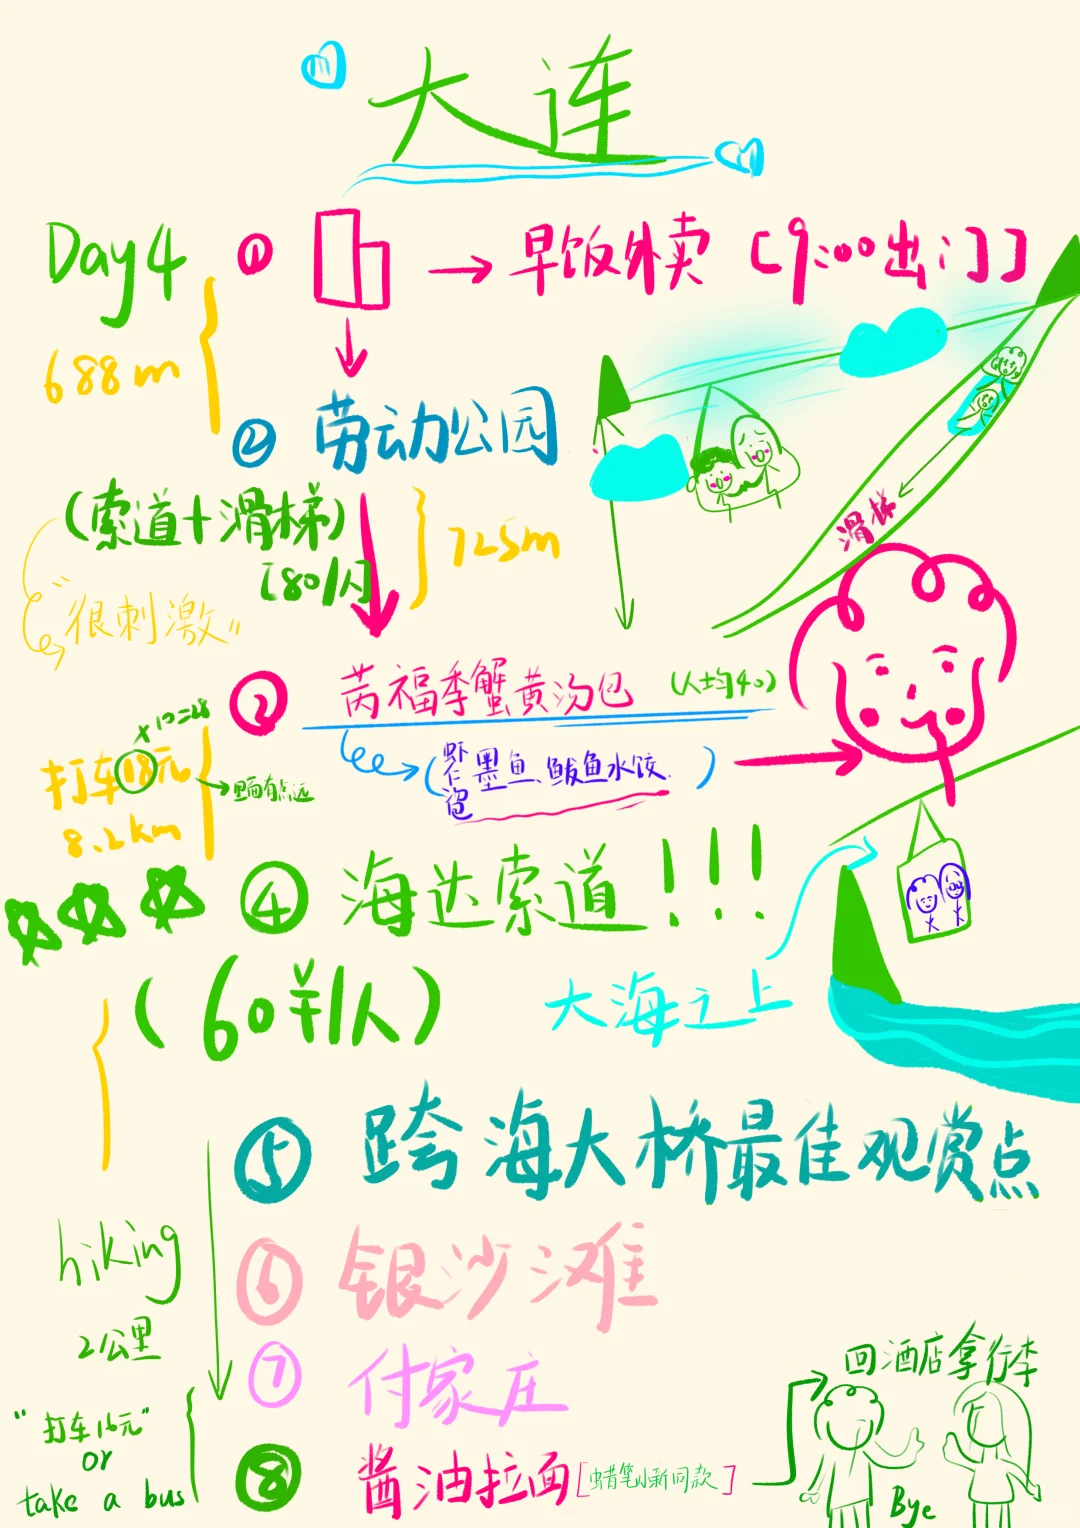 大连
Day4 ① → 早饭外卖 [9:00出门]
688m
② 劳动公园
(索道+滑梯)
[80/人]
725m
"很刺激"
滑梯
③ 芮福季蟹黄汤包 (人均40)
(虾仁 墨鱼、鲅鱼水饺.)
+10=28
打车18元
→里面有点远
8.2km
④ 海达索道!!!
(60¥/人)
大海之上
⑤ 跨海大桥最佳观赏点
hiking
2公里
⑥ 银沙滩
⑦ 付家庄
"打车16元"
or
take a bus
⑧ 酱油拉面[蜡笔小新同款]
回酒店拿行李
Bye